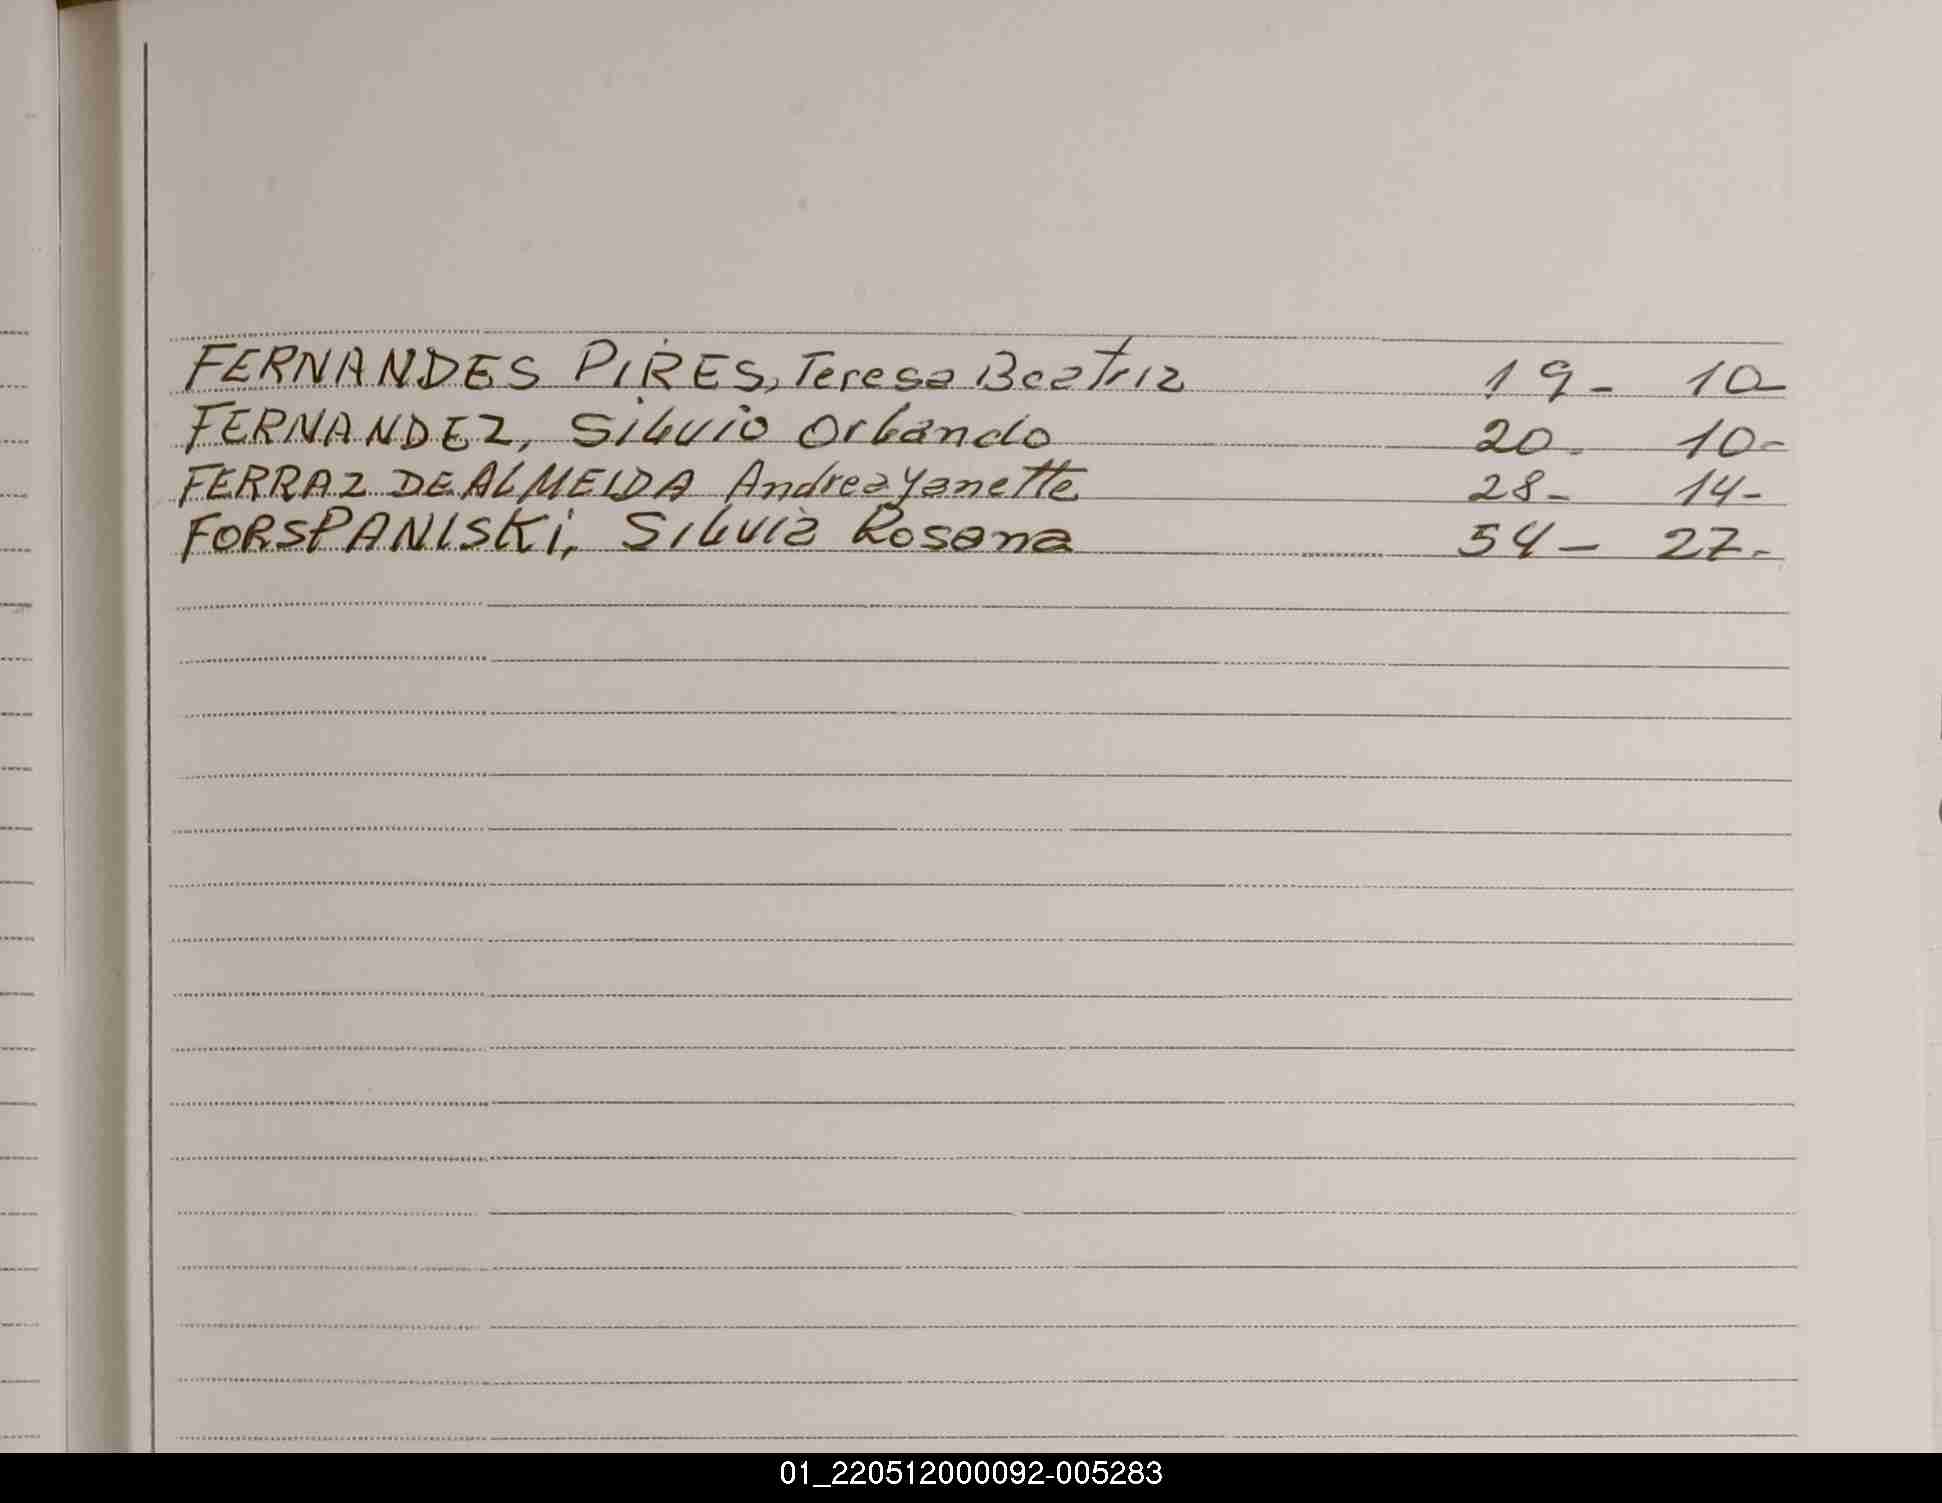 FERNANDES PIRES, Teresa Beatriz 19- 10-
FERNANDEZ, Silvio Orlando 20- 10-
FERRAZ DE ALMEIDA Andrea Yanette 28- 14-
FORSPANISKI, Silvia Rosana 54- 27-
01_220512000092-005283